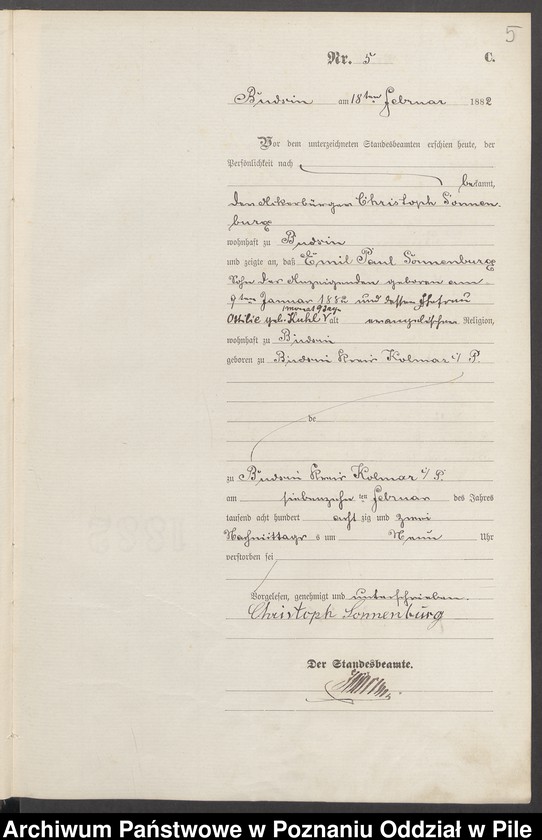 5
Nr. 5 C.
Budsin am 18ten Februar 1882
Vor dem unterzeichneten Standesbeamten erschien heute, der
Persönlichkeit nach
bekannt,
den Ackerbürger Christoph Sonnen-
burg
wohnhaft zu Budsin
und zeigte an, daß Emil Paul Sonnenburg
Sohn des Anzeigenden geboren am
9ten Januar 1882 und dessen Ehefrau
1 Monat 9 Tage
Ottilie geb. Kuhl alt evangelischer Religion,
wohnhaft zu Budsin
geboren zu Budsin Kreis Kolmar i/P.
de
zu Budsin Kreis Kolmar i/P.
am siebenzehnten Februar des Jahres
tausend acht hundert achtzig und zwei
Nachmittags um Neun Uhr
verstorben sei
Vorgelesen, genehmigt und unterschrieben.
Christoph Sonnenburg
Der Standesbeamte.
Archiwum Państwowe w Poznaniu Oddział w Pile